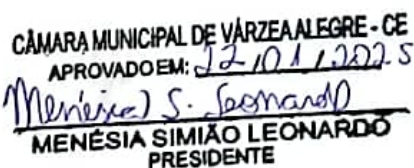 CÂMARA MUNICIPAL DE VÁRZEA ALEGRE - CE
APROVADO EM: 22/01/2025
Menésia S. Leonardo
MENÉSIA SIMIÃO LEONARDO
PRESIDENTE